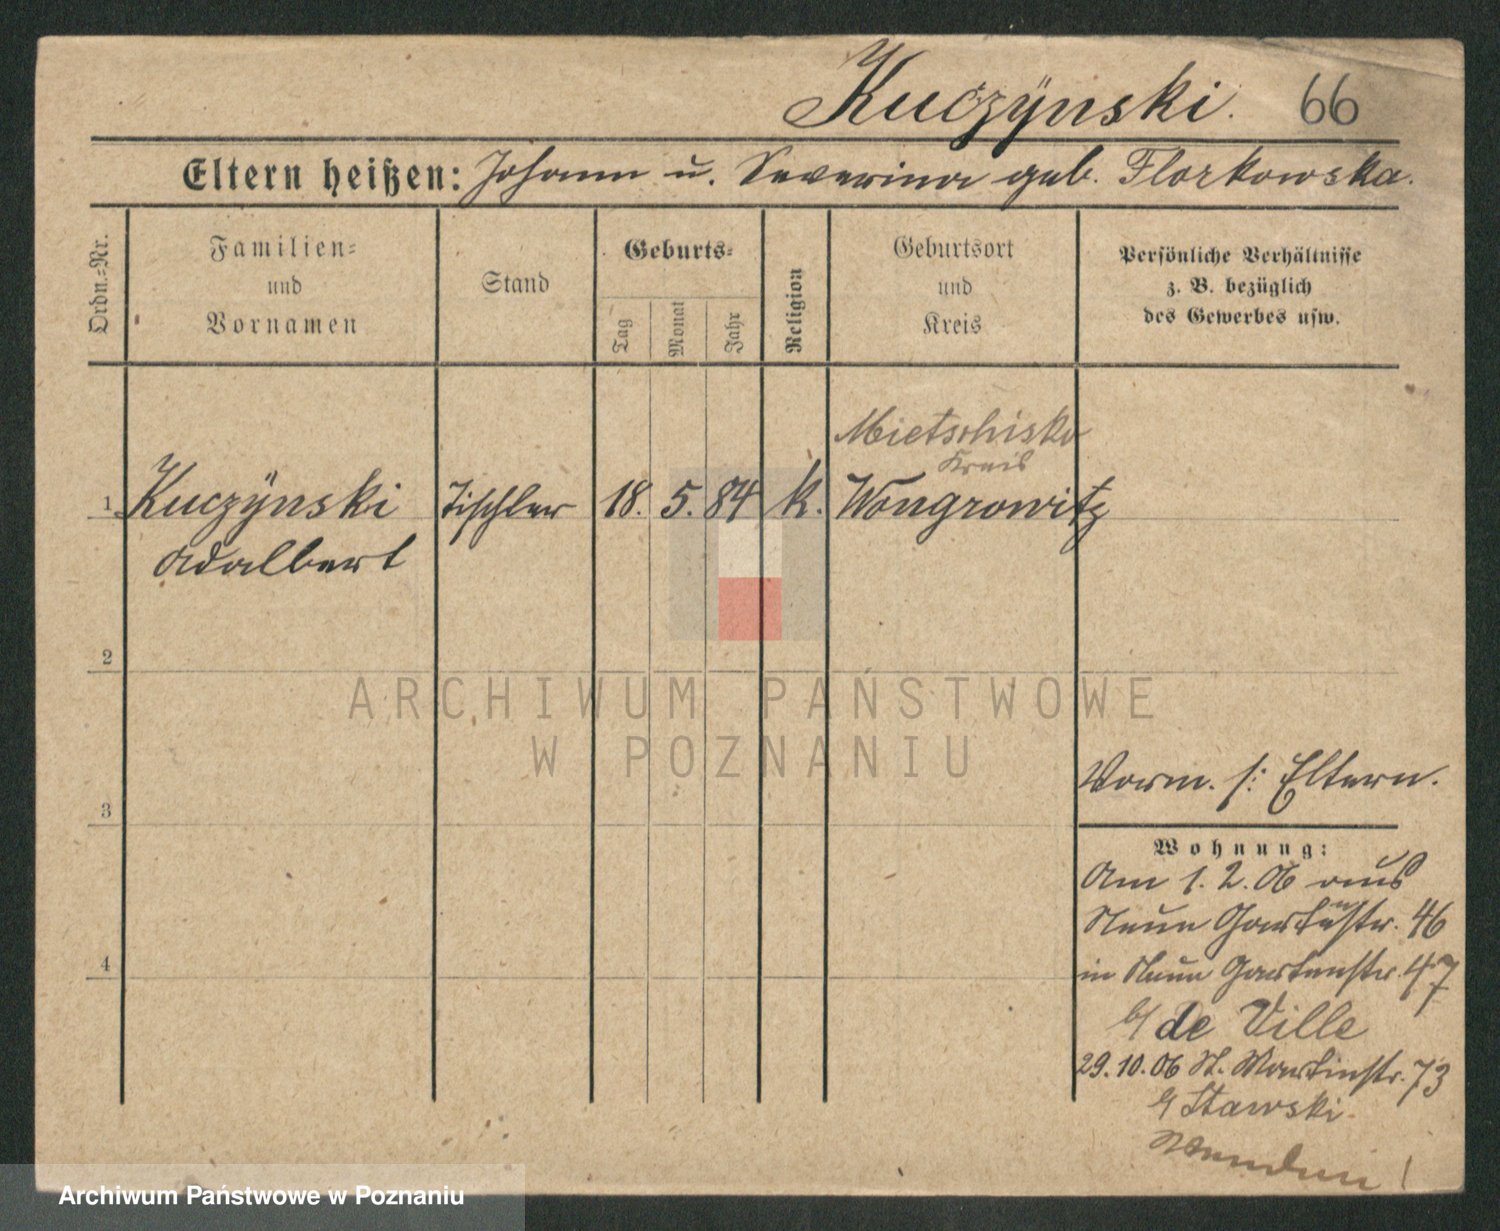 Kuczÿnski. 66
Eltern heißen: Johann u. Severina geb. Florkowska.
Ordn.=Nr.
Familien=
und
Vornamen
Stand
Geburts=
Tag
Monat
Jahr
Religion
Geburtsort
und
Kreis
Persönliche Verhältnisse
z. B. bezüglich
des Gewerbes usw.
Mietschisko
Kreis
1 Kuczÿnski Tischler 18. 5. 84 k. Wongrowitz
Adalbert
2
ARCHIWUM PAŃSTWOWE
W POZNANIU
Vorm. s: Eltern.
3
Wohnung:
Am 1. 2. 06 aus
Neue Gartenstr. 46
in Neue Gartenstr. 47
b/ de Ville
29. 10. 06 St. Martinstr. 73
b/ Stawski
4
Archiwum Państwowe w Poznaniu